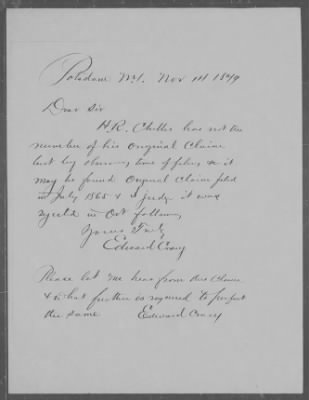 Potsdam N.Y. Nov 1st 1879
Dear Sir
H.R. has not the
number of his Original Claim
but by observing time of filing & it
may be found Original Claim filed
in July 1865 & I judge it was
rejected in Oct following
Yours Truly
Edward Crary
Please let me hear from this Claim
& what further is required to perfect
the same Edward Crary